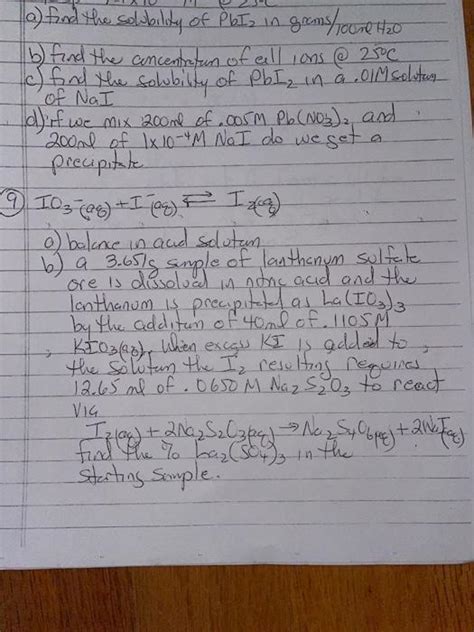 a) find the solubility of PbI2 in grams/100ml H2O
b) find the concentration of all ions @ 25°C
c) find the solubility of PbI2 in a .01M solution
of NaI
d) if we mix 200ml of .005M Pb(NO3)2 and
200ml of 1x10-4M NaI do we get a
precipitate
9) IO3-(aq) + I-(aq) ⇌ I2(aq)
a) balance in acid solution
b) a 3.651g sample of lanthanum sulfate
ore is dissolved in nitric acid and the
lanthanum is precipitated as La(IO3)3
by the addition of 40ml of .1105M
KIO3(aq). When excess KI is added to
the solution the I2 resulting requires
12.65 ml of .0650M Na2S2O3 to react
via
I2(aq) + 2Na2S2O3(aq) → Na2S4O6(aq) + 2NaI(aq)
find the % La2(SO4)3 in the
starting sample.